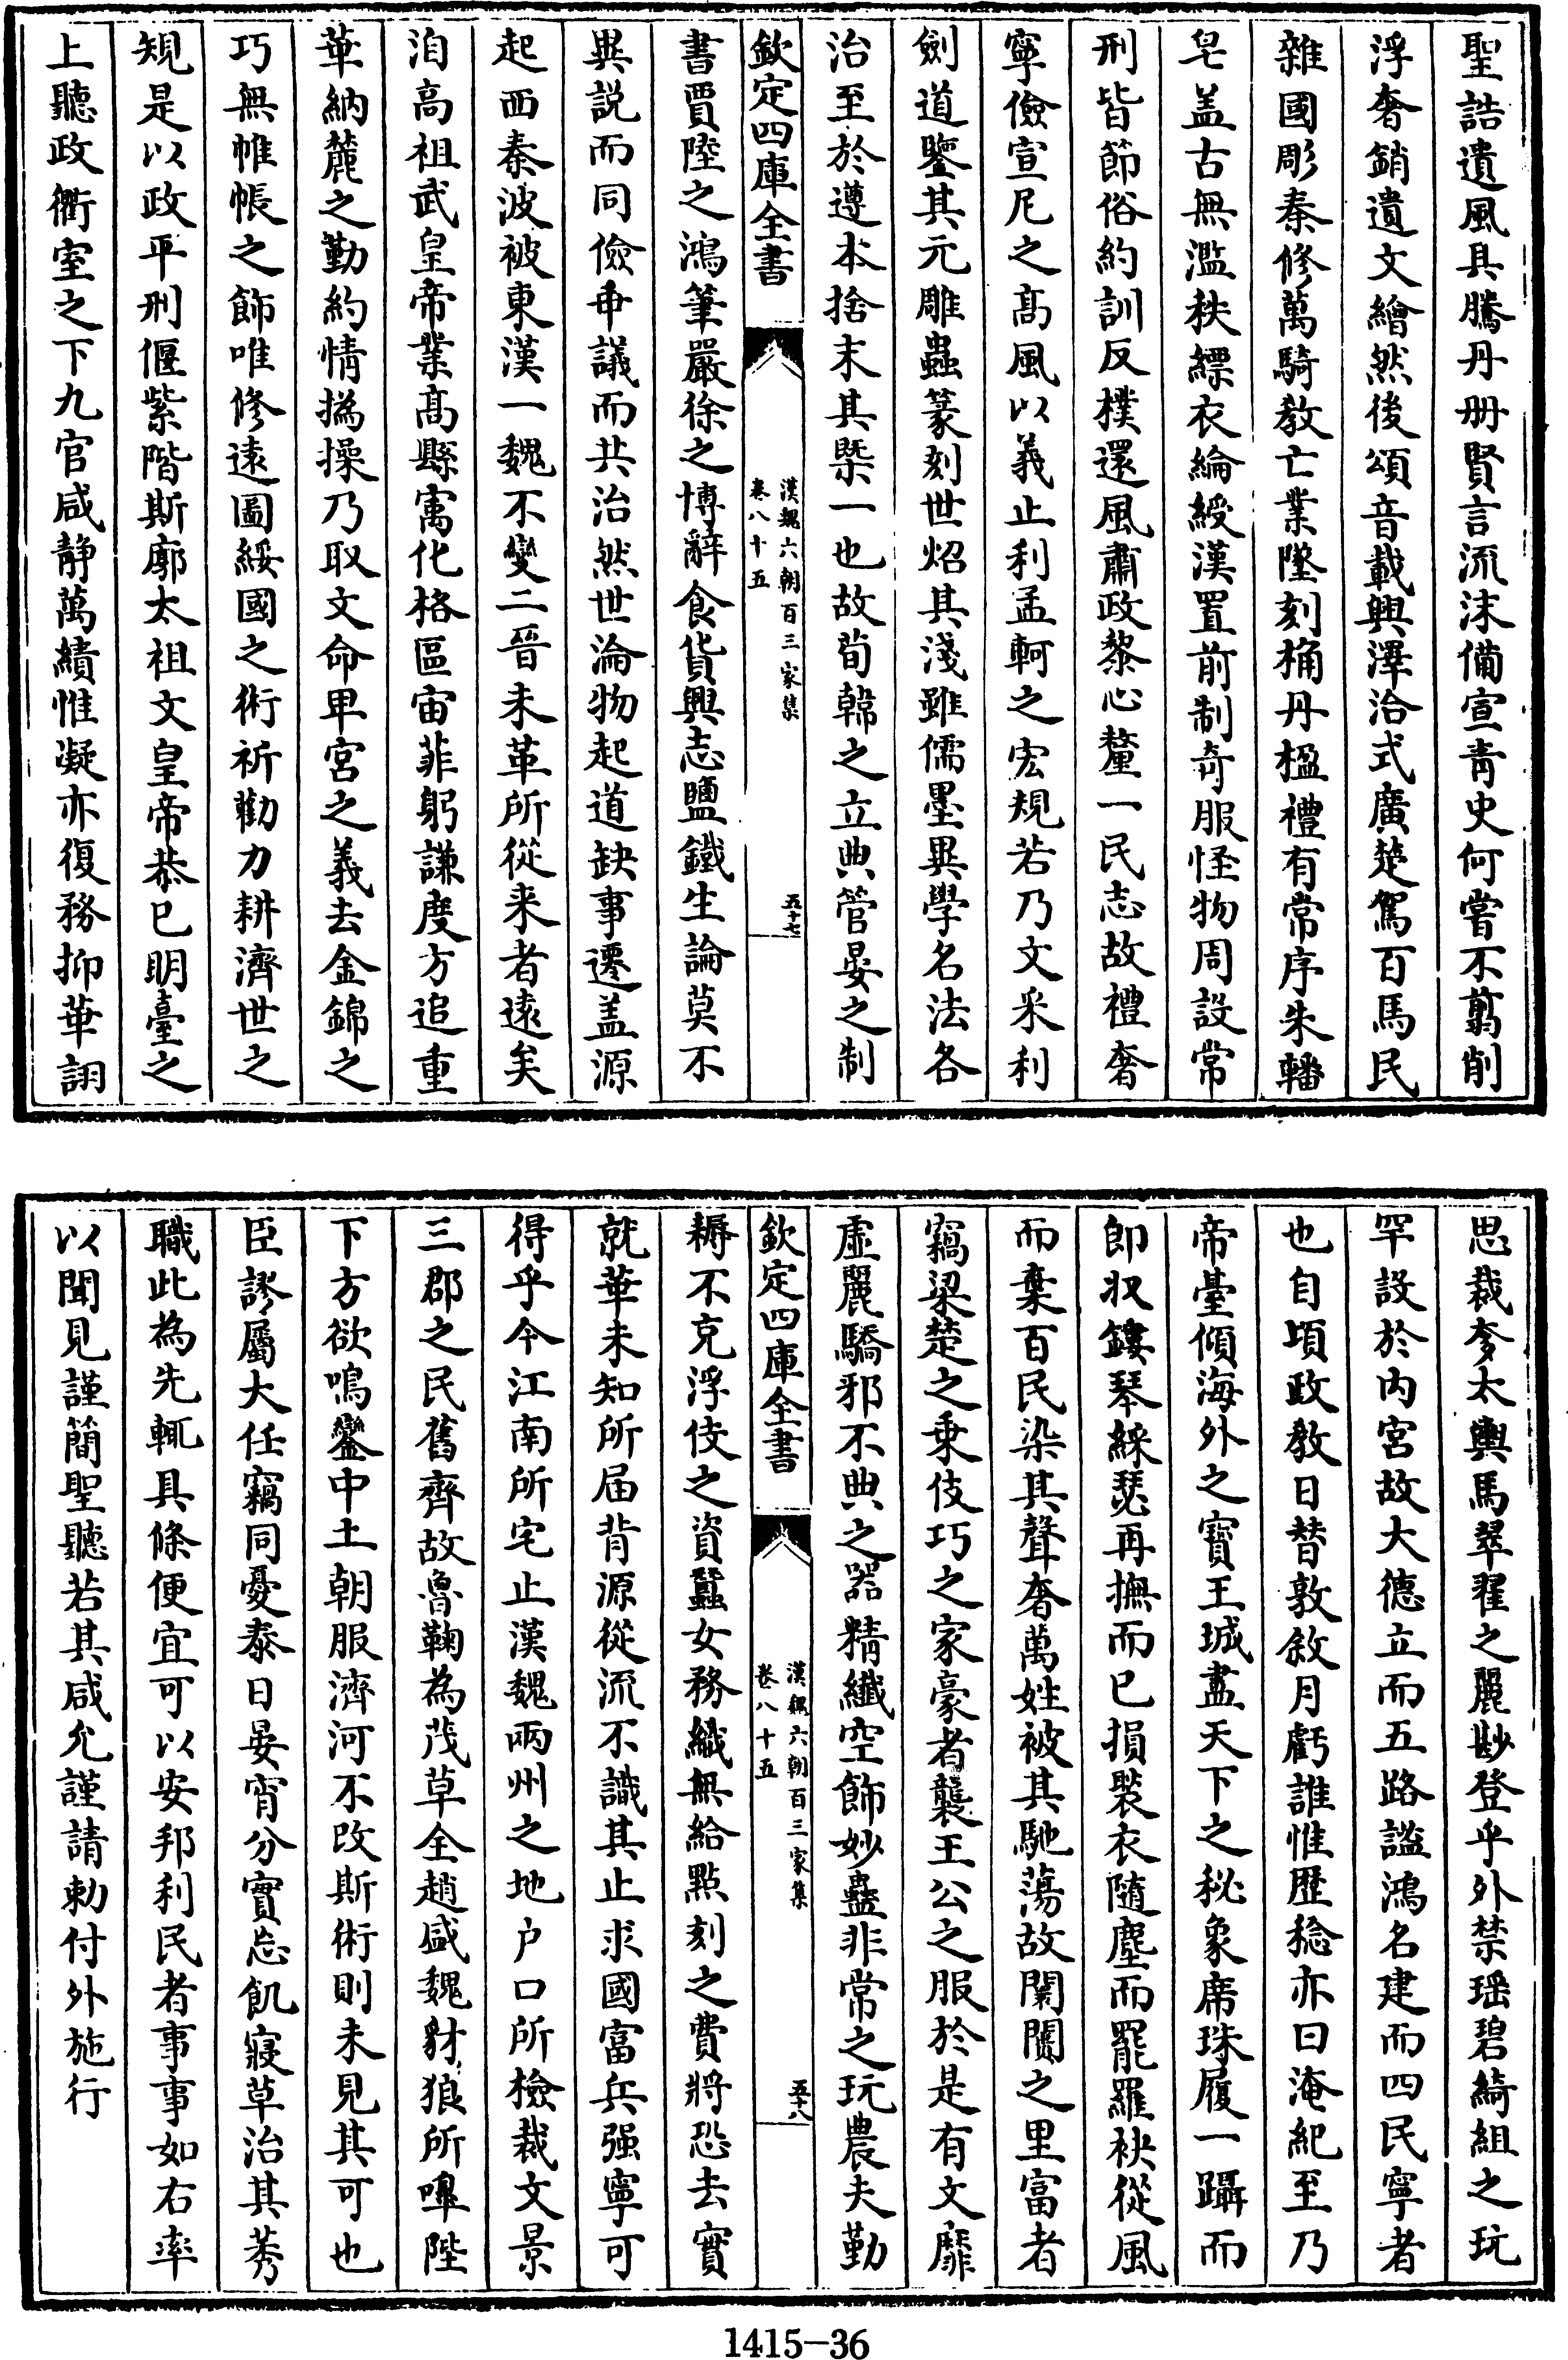 聖誥遺風具騰丹册賢言流沫備宣青史何嘗不翦削
浮奢銷遺文繪然後頌音載興澤洽式廣楚駕百馬民
雜國彫秦修萬騎教亡業墜刻桷丹楹禮有常序朱轓
皂盖古無濫秩縹衣綸綬漢置前制奇服怪物周設常
刑皆節俗約訓反樸還風肅政黎心釐一民志故禮奢
寧儉宣尼之髙風以義止利孟軻之宏規若乃文釆利
劍道鑒其元雕蟲篆刻世炤其淺雖儒墨異學名法各
治至於遵本捨末其槩一也故荀韓之立典管晏之制
欽定四庫全書
漢魏六朝百三家集
卷八十五
五十七
書賈陸之鴻筆嚴徐之博辭食貨興志鹽鐵生論莫不
異説而同儉爭議而共治然世淪物起道缺事遷盖源
起西秦波被東漢一魏不變二晉未革所從来者遠矣
洎高祖武皇帝業髙縣寓化格區宙菲躬謙度方追重
華納麓之勤約情撝操乃取文命卑宮之義去金錦之
巧無帷帳之飾唯修遠圖綏國之術祈勸力耕濟世之
規是以政平刑偃紫階斯廓太祖文皇帝恭已明臺之
上聽政衢室之下九官咸静萬績惟凝亦復務抑華詡
思裁奓太輿馬翠翟之麗尠登乎外禁瑶碧綺組之玩
罕設於内宮故大德立而五路謐鴻名建而四民寧者
也自頃政教日替敦敘月虧誰惟歴稔亦曰淹紀至乃
帝臺傾海外之寶王城盡天下之秘象席珠履一躡而
卽收鏤琴綵瑟再撫而已損裂衣随塵而罷羅袂從風
而棄百民染其聲奢萬姓被其馳蕩故闤闠之里富者
竊梁楚之乗伎巧之家豪者襲王公之服於是有文靡
虚麗驕邪不典之器精纎空飾妙蠱非常之玩農夫勤
欽定四庫全書
漢魏六朝百三家集
卷八十五
五十八
耨不克浮伎之資蠶女務織無給點刻之費將恐去實
就華未知所届背源從流不識其止求國富兵强寧可
得乎今江南所宅止漢魏兩州之地户口所檢裁文景
三郡之民舊齊故魯鞠為茂草全趙盛魏豺狼所嘷陛
下方欲鳴鑾中土朝服濟河不改斯術則未見其可也
臣謬屬大任竊同憂泰日晏宵分實忘飢寢草治其莠
職此為先輒具條便宜可以安邦利民者事事如右率
以聞見謹簡聖聽若其咸允謹請勅付外施行
1415-36